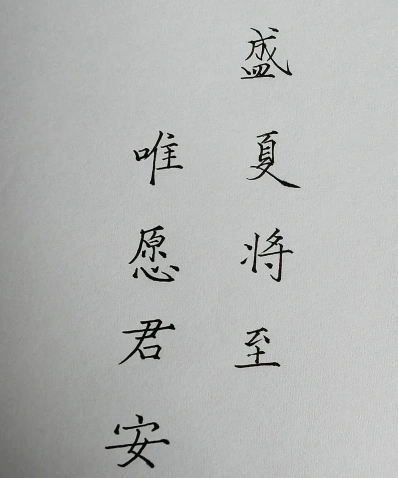 盛夏将至
唯愿君安